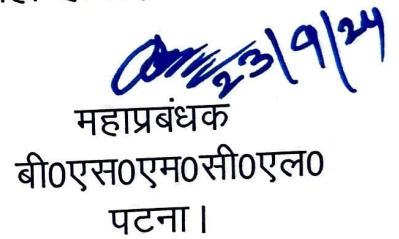 23/9/24
महाप्रबंधक
बी0एस0एम0सी0एल0
पटना।